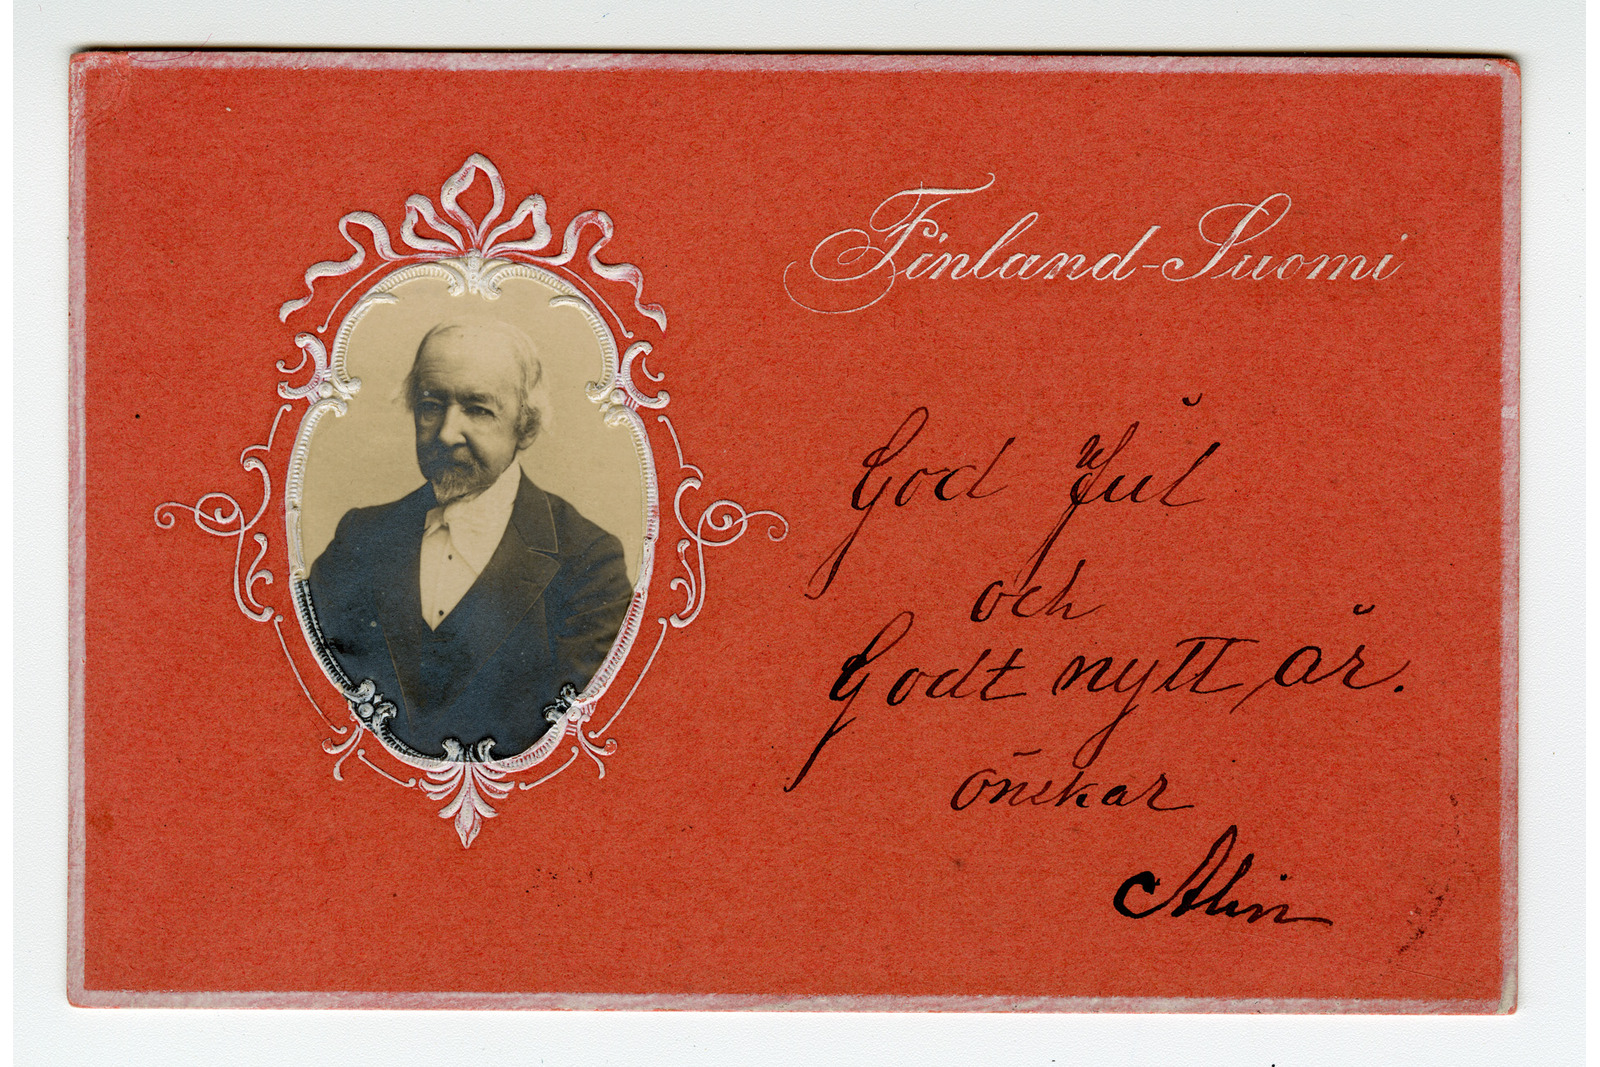 Finland-Suomi
God Jul
och
Godt nytt år.
önskar
Alin